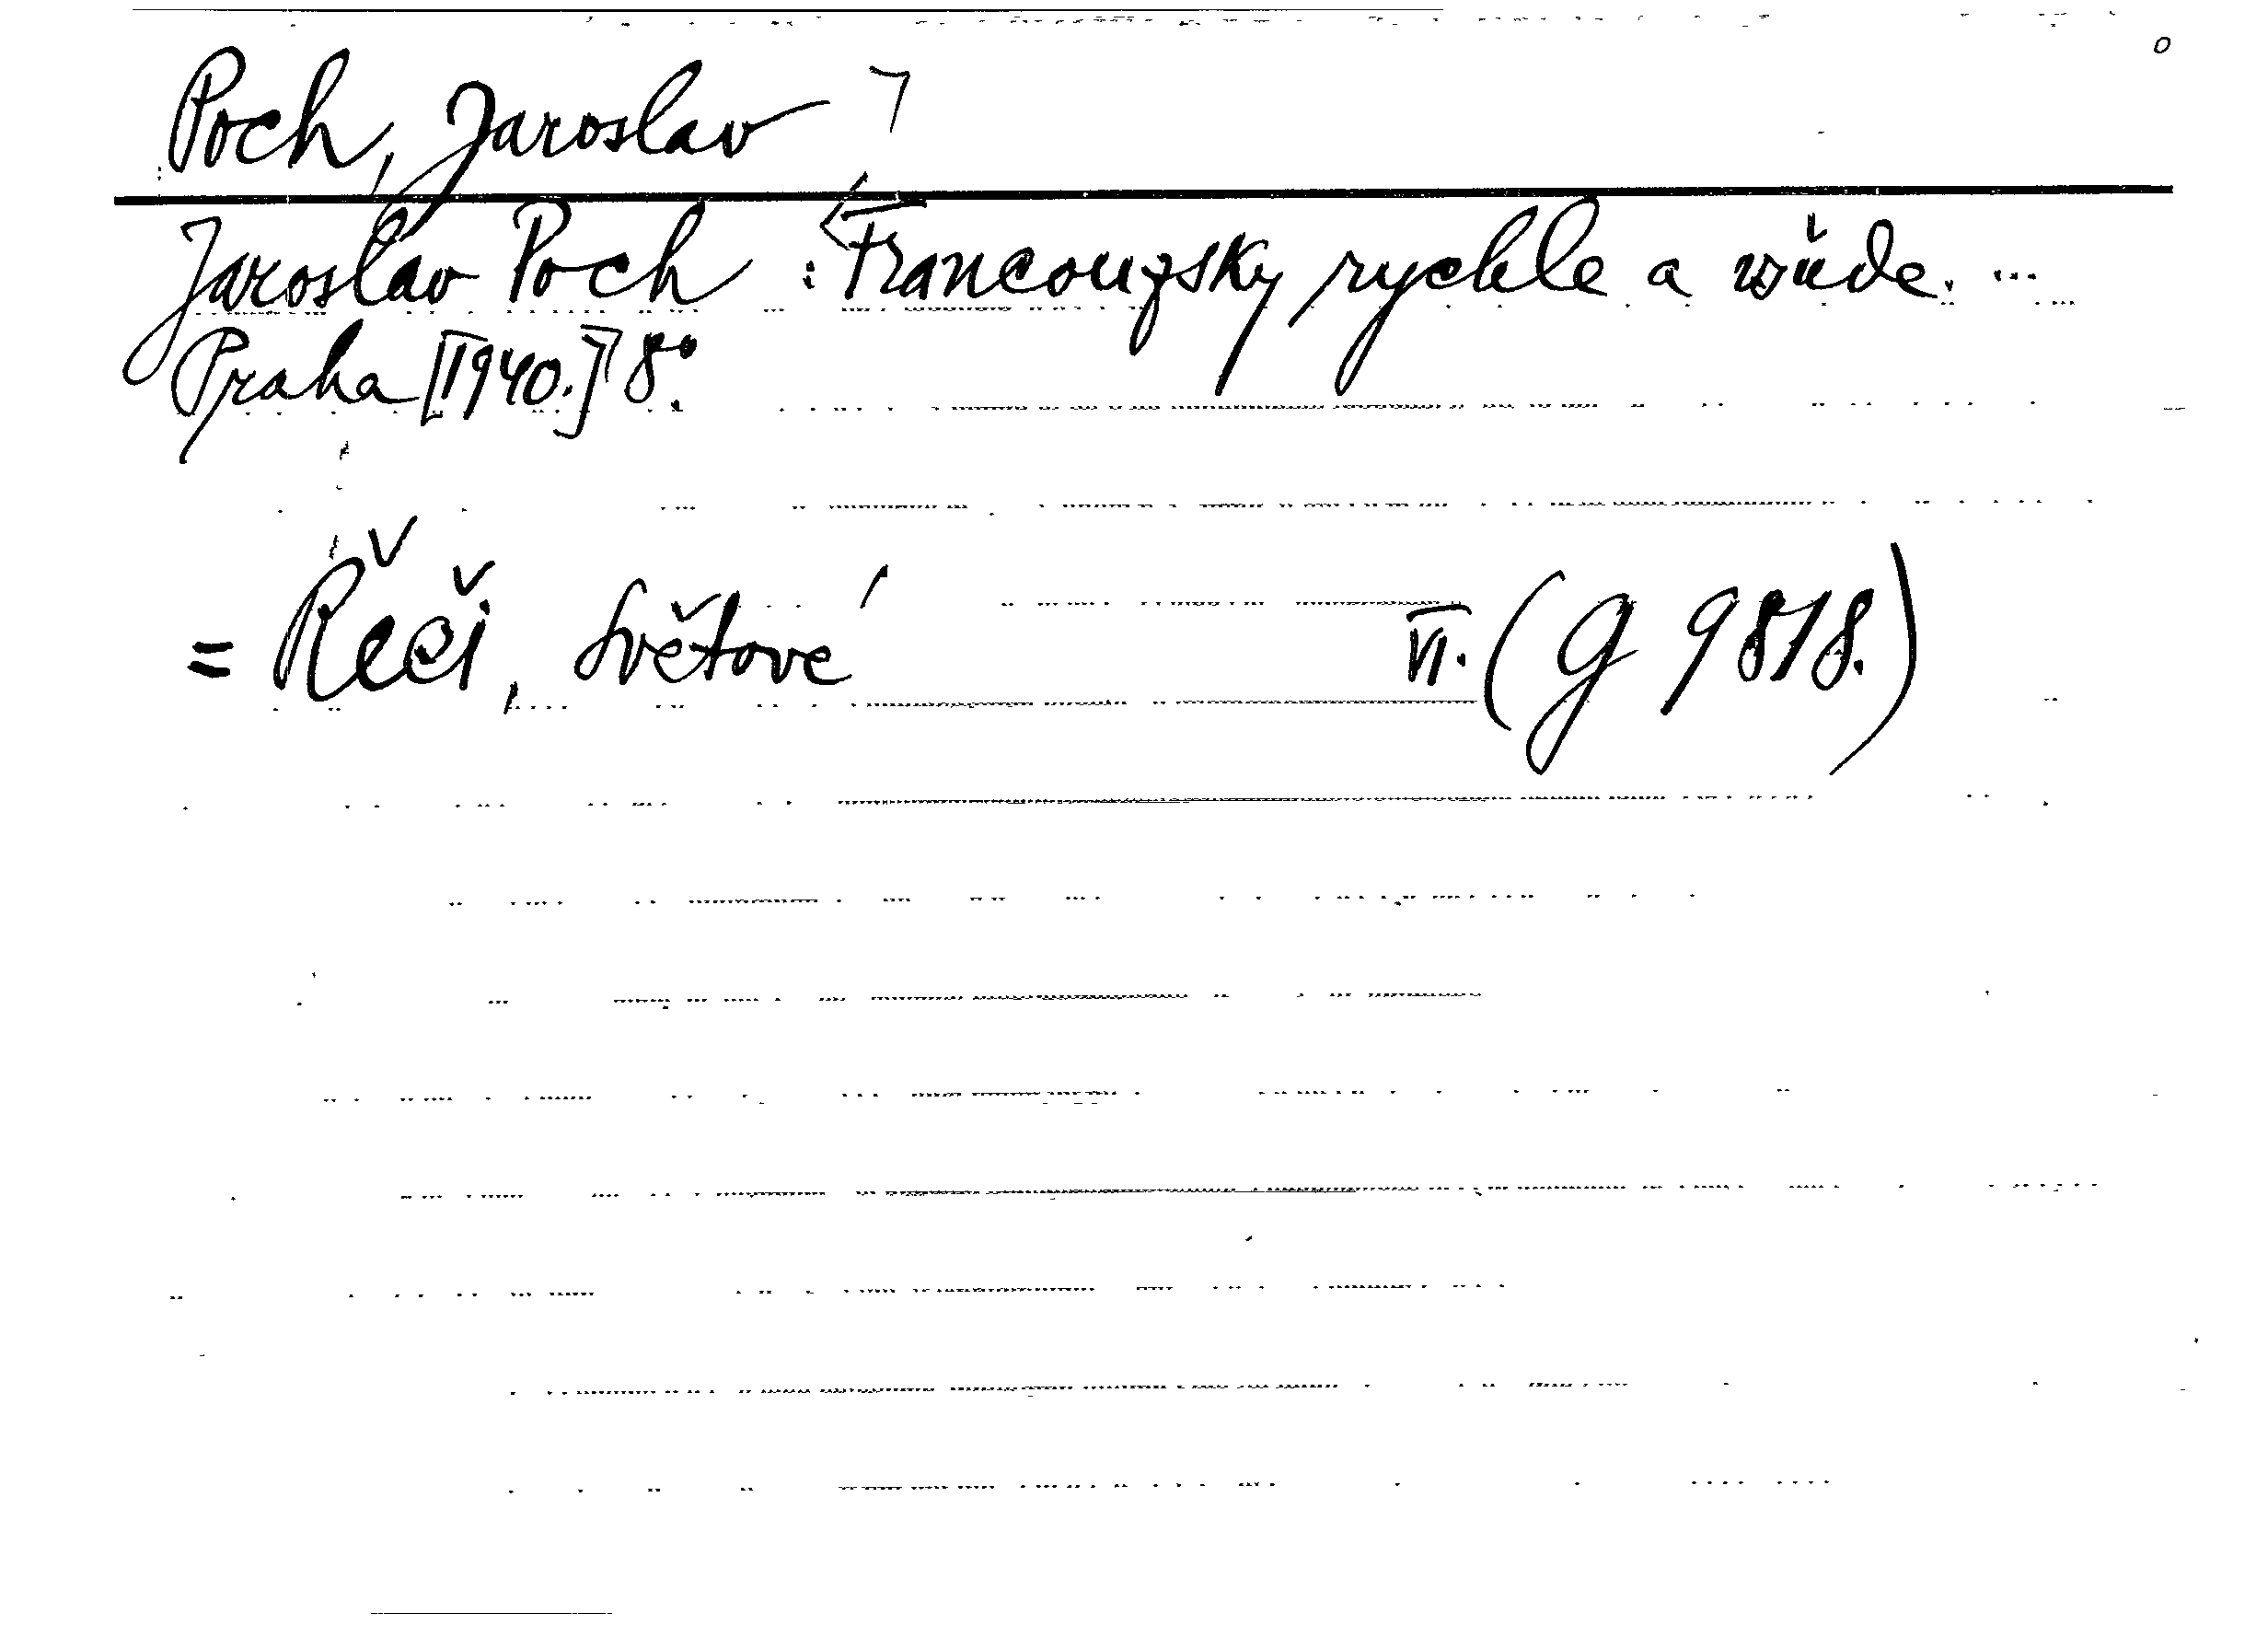 Poch, Jaroslav
Jaroslav Poch : Francouzsky rychle a všude. ...
Praha [1940.] 8°.
= Řeči, světové VI. (G 9818.)